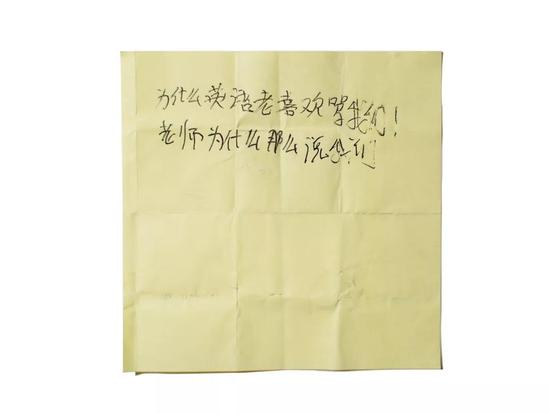 为什么英语老喜欢骂我们!
老师为什么那么说我们